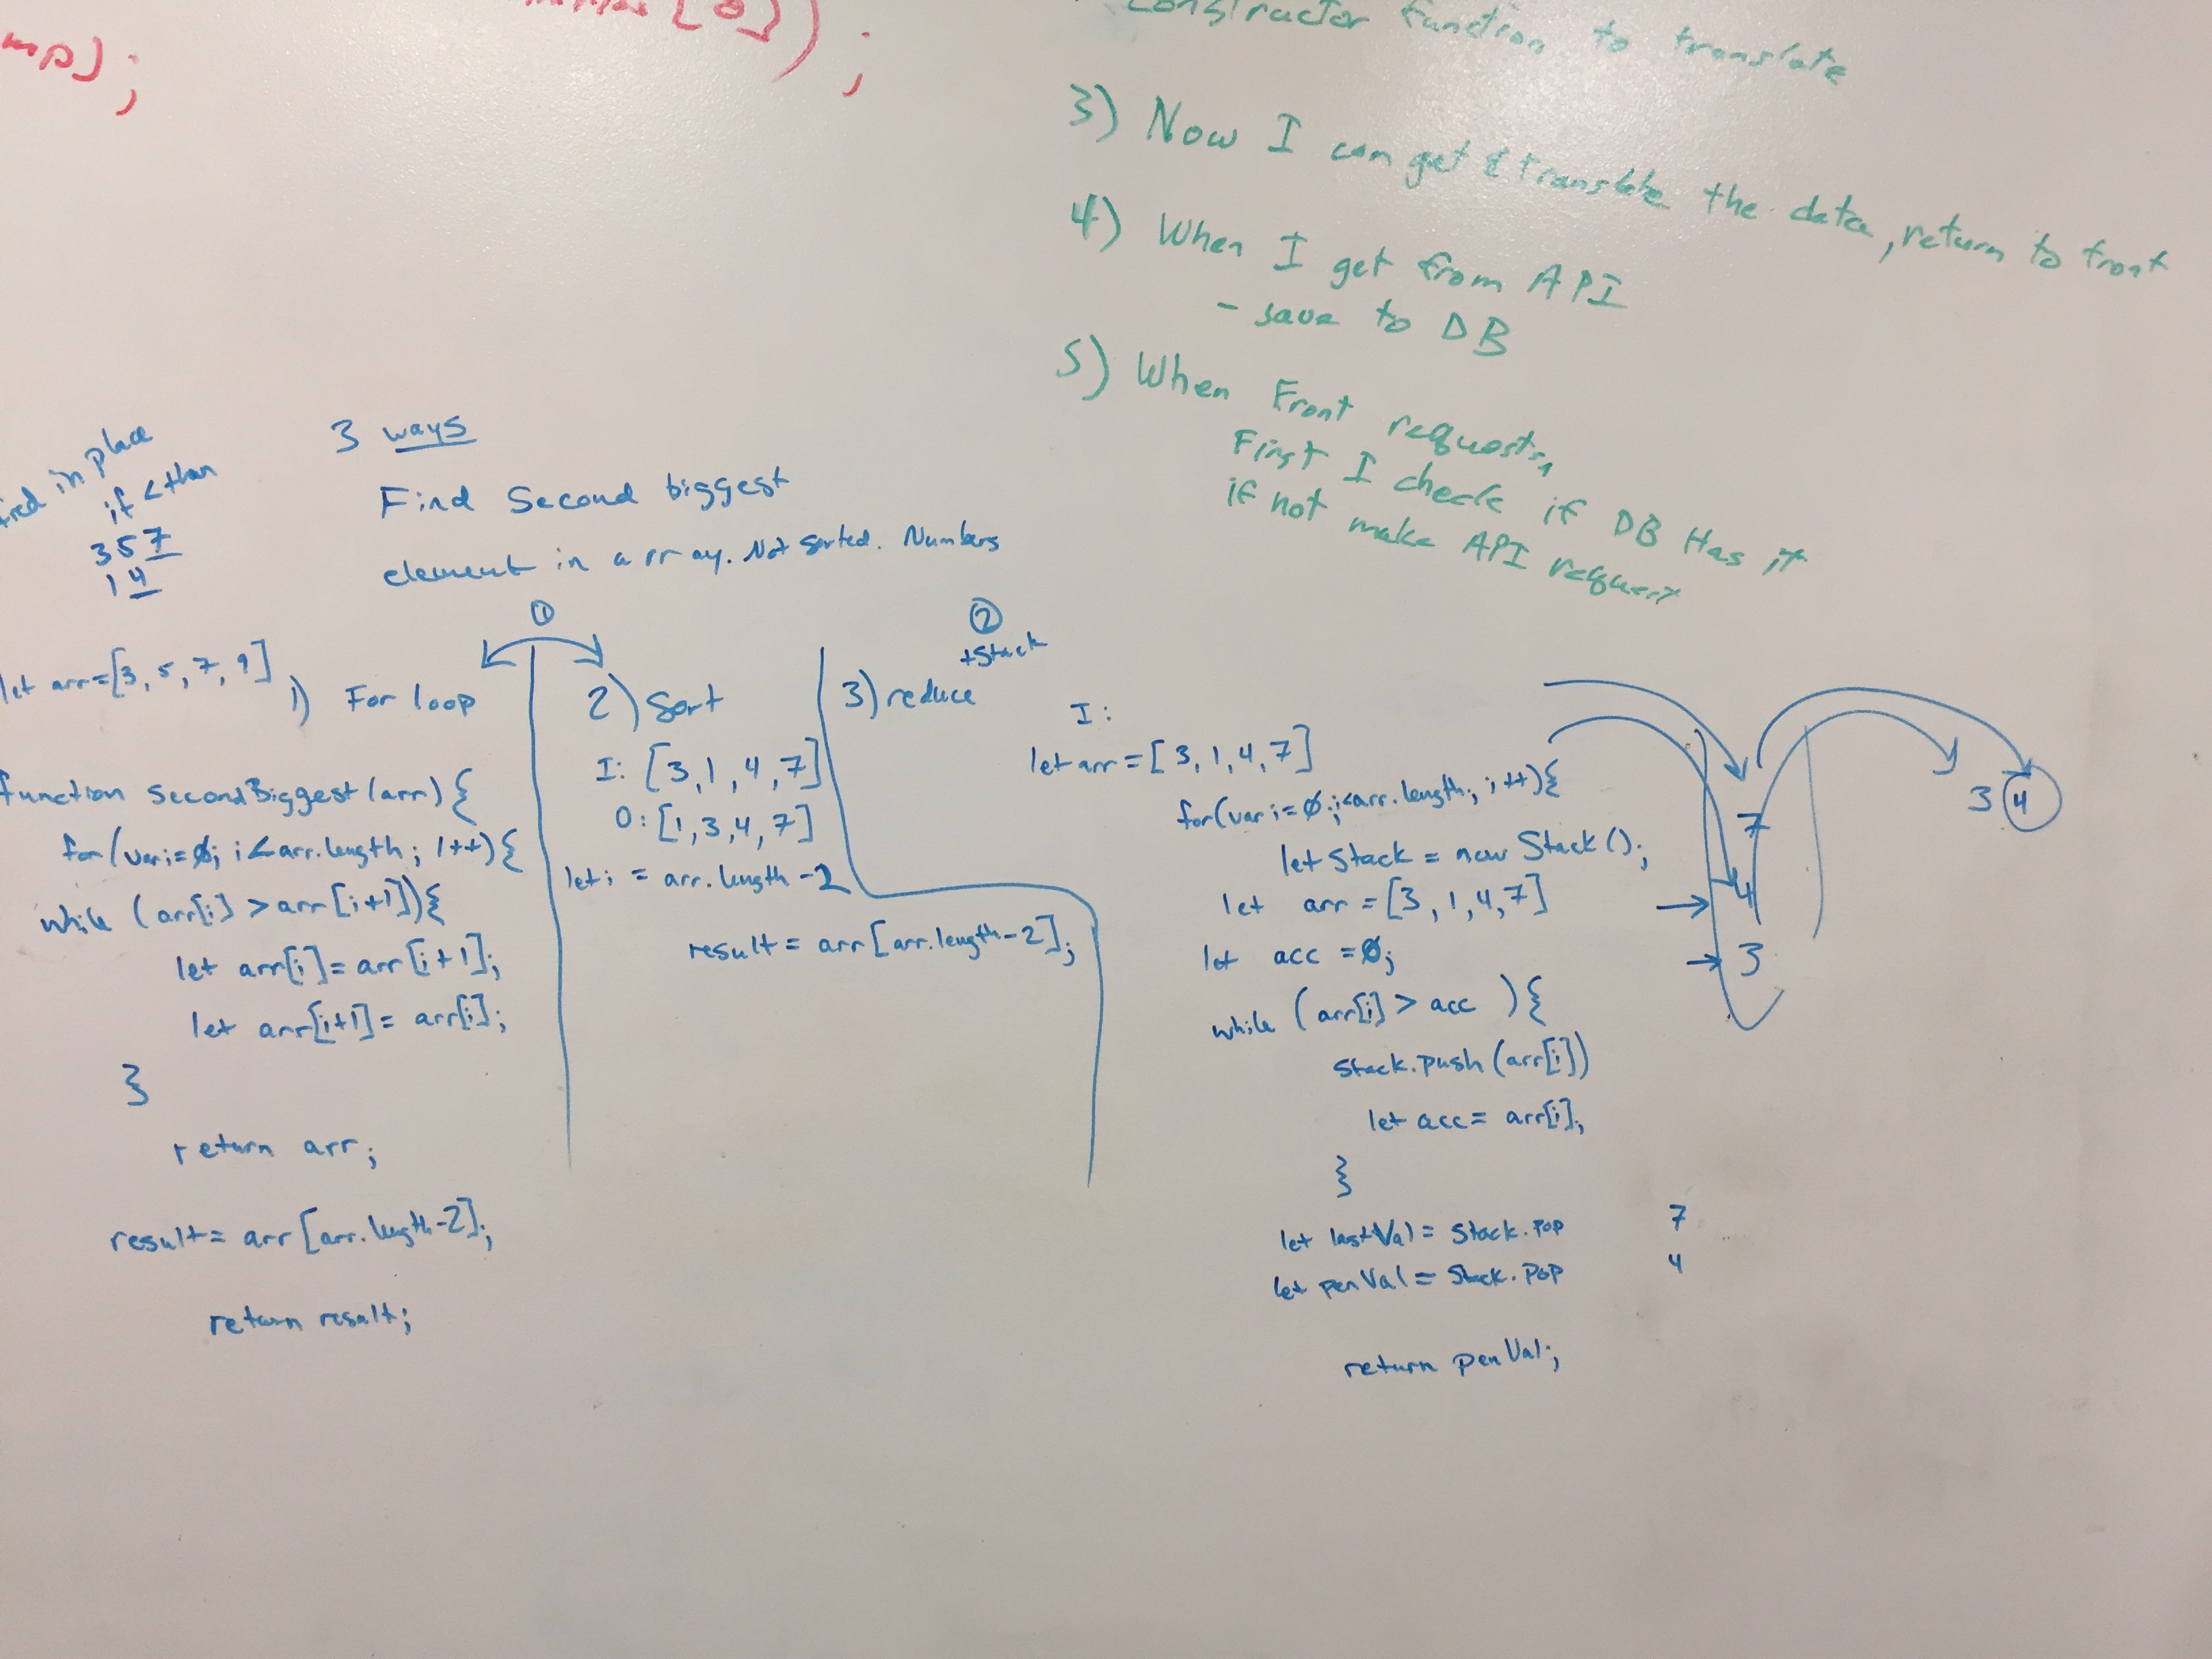 );
[0]);
constructor function to translate
3) Now I can get & translate the data, return to front
4) When I get from API
- save to DB
5) When Front requests,
First I check if DB Has it
if not make API request
in place
if < than
3 5 7
1 4
3 ways
Find Second biggest
element in array. Not sorted. Numbers
①
②
+Stack
let arr=[3, 5, 7, 9]
1) For loop
function secondBiggest(arr){
for(var i=0; i<arr.length; i++){
while (arr[i] > arr[i+1]){
let arr[i]=arr[i+1];
let arr[i+1]= arr[i];
}
return arr;
result= arr[arr.length-2];
return result;
2) Sort
I: [3,1,4,7]
O: [1,3,4,7]
let i = arr.length-2
result= arr[arr.length-2];
3) reduce
I:
let arr = [3, 1, 4, 7]
for(var i=0; i<arr.length; i++){
let Stack = new Stack();
let arr = [3, 1, 4, 7]
let acc = 0;
while (arr[i] > acc ){
Stack.push(arr[i])
let acc= arr[i];
}
let lastVal= Stack.pop 7
let penVal= Stack.pop 4
return penVal;
7
4
3
3 4